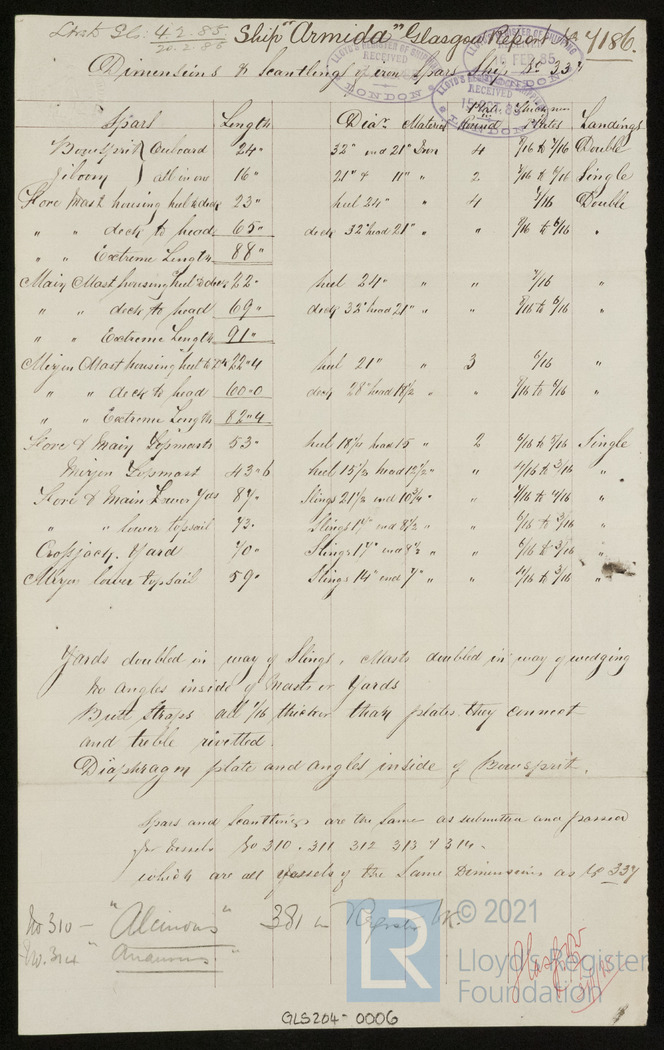 4.2.85 Ship "Armida" Glasgow Report No 7186.
20.2.85
LLOYD'S REGISTER OF SHIPPING RECEIVED FEB. 85 LONDON
Dimensions & Scantlings of iron Spars Ship No 337
Spars Length Dia. Material Plates in Round Thickness of Plates Landings
Bowsprit Outboard 24" 32" end 21" Iron 4 Double
Jiboom all in one 16" 21" & 11" " 2 Single
Fore Mast housing heel to deck 23" heel 24" " 4 7/16 Double
" " deck to head 65" deck 32" head 21" " " 8/16 to 6/16 "
" " Extreme Length 88"
Main Mast housing heel to deck 22" heel 24" " " 7/16 "
" " deck to head 69" deck 32" head 21" " " 8/16 to 6/16 "
" " Extreme Length 91"
Mizen Mast housing heel to 22"4 heel 21" " 3 6/16 "
" " deck to head 60"0 deck 28" head 18½ " "
" " Extreme Length 82"4
Fore & Main Topmasts 53" heel 18½ head 15 " 2 Single
Mizen Topmast 43"6 heel 15½ head 12½" " " "
Fore & Main Lower Yds 87" Slings 21½ end 10¾" " " "
" " lower topsail 73" Slings 17" end 8½" " " "
Crossjack Yard 70" Slings 17" end 8½ " " "
Mizen lower topsail 59" Slings 14" end 7" " " 4/16 to 3/16 "
Yards doubled in way of Slings, Masts doubled in way of wedging
No angles inside of Masts or Yards
Butt Straps all 1/16 thicker than plates they connect
and treble rivetted.
Diaphragm plate and angles inside of Bowsprit.
Spars and Scantlings are the same as submitted and passed
for Vessels No 310. 311 312 313 & 314.
which are all Vessels of the Same Dimensions as No 337
No 310 — "Alcinous" 381 in Register Bk.
No. 314 "
© 2021
LR Lloyd's Register
Foundation
Glasgow
GLS204-0006